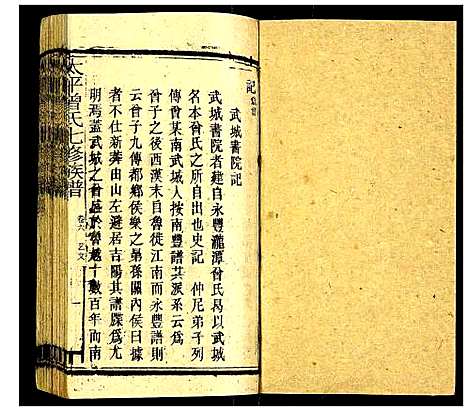 記
武城書院記
武城書院者建自永豐瀧潭曾氏曷以武城
名本曾氏之所自出也史記　仲尼弟子列
傳曾某南武城人按南豐譜其派系云為
曾子之後西漢末自魯徙江南而永豐譜則
云曾子九傳都鄉侯樂之弟孫關內侯曰據
者不仕新莽由山左避居吉陽其譜牒為尤
明焉蓋武城之曾 於魯越十數百年而南
太平曾氏七修族譜
卷六 艺文
一